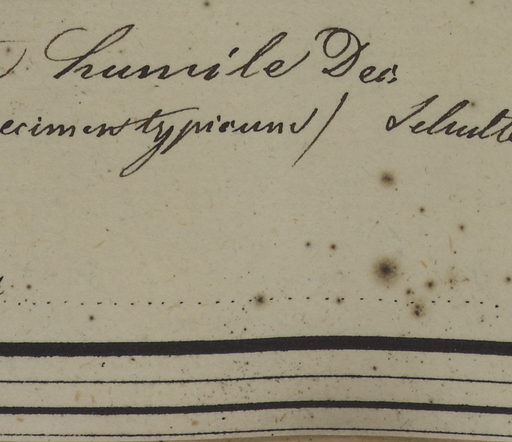 humile Des.
ecimen typicum) Schult